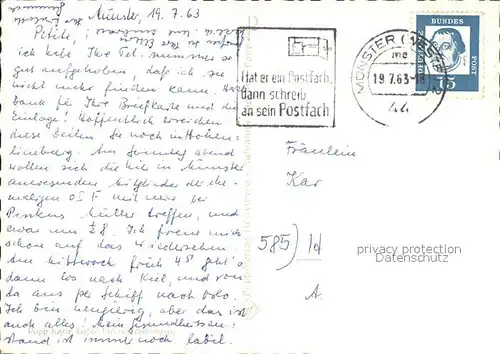 Münster, 19.7.63
Petite,
ich habe Ihre Tel. nummer so
gut aufgehoben, daß ich sie
nicht mehr finden kann. Hab
Dank für Ihre Briefkarte und die
Einlage! Hoffentlich erreichen
diese Zeilen Sie noch in Hohen-
limburg. Am Sonntag abend
wollen sich die hier in Münster
anwesenden Mitglieder der ehe-
maligen O I F mit mir bei
Pinkus Müller treffen, und
zwar um 1/2 8. Ich freue mich
schon auf das Wiedersehen.
Am Mittwoch früh 4⁴⁵ geht's
dann los nach Kiel, und von
da aus per Schiff nach Oslo.
Ich bin neugierig, aber das ist
auch alles! Mein Gesundheitszu-
stand ist immer noch labil.
Hat er ein Postfach,
dann schreib
an sein Postfach
MÜNSTER (WESTF)
19.7.63-18
44
DEUTSCHE BUNDESPOST
15
Fräulein
Kar
585) Id
A
privacy protection
Datenschutz